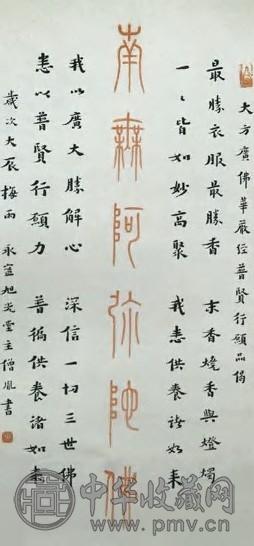 大方廣佛華嚴經普賢行願品偈
最勝衣服最勝香 末香燒香與燈燭
一々皆如妙高聚 我悉供養諸如來
南無阿弥陀佛
我以廣大勝解心 深信一切三世佛
悉以普賢行願力 普徧供養諸如來
歲次大辰梅雨 永 旭光堂主僧胤書
中华收藏网
www.pmv.cn